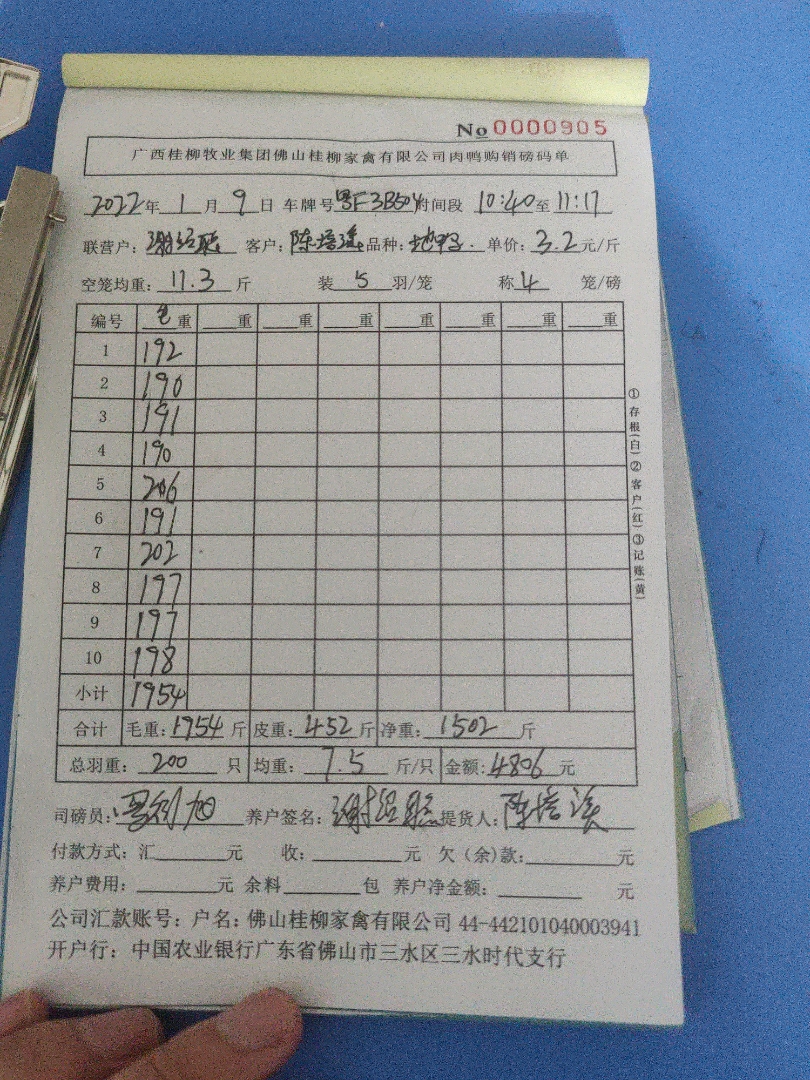 No 0000905
广西桂柳牧业集团佛山桂柳家禽有限公司肉鸭购销磅码单
2022年 1月 9日 车牌号 粤F3B504 时间段 10:40至11:17
联营户: 谢经聪 客户: 陈培溪 品种: 单价: 3.2元/斤
空笼均重: 11.3斤 装 5 羽/笼 称 4 笼/磅
编号 毛重 重 重 重 重 重 重 重
1 192
2 190
3 191
4 190
5 206
6 191
7 202
8 197
9 197
10 198
小计 1954
合计 毛重: 1954斤 皮重: 452斤 净重: 1502斤
总羽重: 200只 均重: 7.5斤/只 金额: 4806元
司磅员: 养户签名: 谢经聪 提货人: 陈培溪
付款方式: 汇 元 收: 元 欠(余)款: 元
养户费用: 元 余料 包 养户净金额: 元
公司汇款账号: 户名: 佛山桂柳家禽有限公司 44-442101040003941
开户行: 中国农业银行广东省佛山市三水区三水时代支行
①存根(白)②客户(红)③记账(黄)